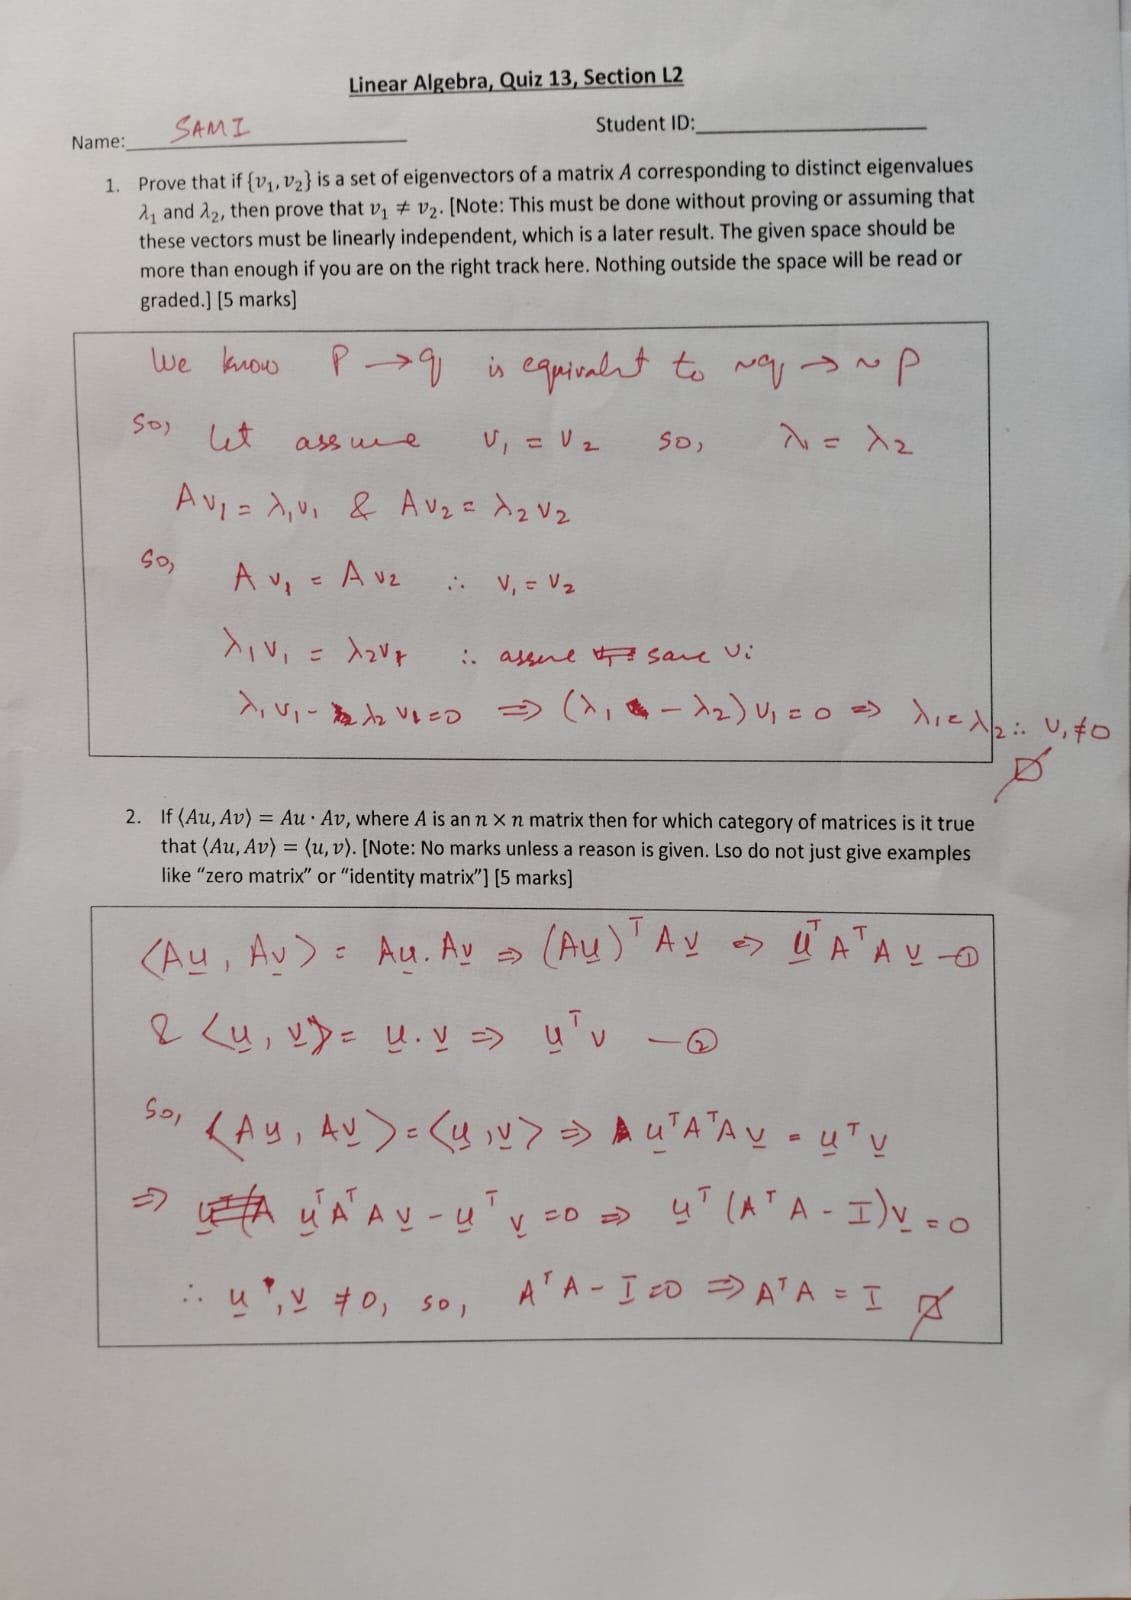 Linear Algebra, Quiz 13, Section L2
Name: SAMI Student ID:
1. Prove that if {v₁, v₂} is a set of eigenvectors of a matrix A corresponding to distinct eigenvalues
λ₁ and λ₂, then prove that v₁ ≠ v₂. [Note: This must be done without proving or assuming that
these vectors must be linearly independent, which is a later result. The given space should be
more than enough if you are on the right track here. Nothing outside the space will be read or
graded.] [5 marks]
We know P → q is equivalent to ~q → ~P
So, let assume v₁ = v₂ so, λ₁ = λ₂
Av₁ = λ₁v₁ & Av₂ = λ₂v₂
So, Av₁ = Av₂ ∴ v₁ = v₂
λ₁v₁ = λ₂v₁ ∴ assume same vᵢ
λ₁v₁ - λ₂v₁ = 0 ⇒ (λ₁ - λ₂)v₁ = 0 ⇒ λ₁ = λ₂ ∴ v₁ ≠ 0
2. If ⟨Au, Av⟩ = Au · Av, where A is an n × n matrix then for which category of matrices is it true
that ⟨Au, Av⟩ = ⟨u, v⟩. [Note: No marks unless a reason is given. Lso do not just give examples
like “zero matrix” or “identity matrix”] [5 marks]
⟨Au, Av⟩ = Au . Av ⇒ (Au)ᵀ Av ⇒ uᵀAᵀAv —①
& ⟨u, v⟩ = u . v ⇒ uᵀv —②
So, ⟨Au, Av⟩ = ⟨u, v⟩ ⇒ uᵀAᵀAv = uᵀv
⇒ uᵀAᵀAv - uᵀv = 0 ⇒ uᵀ(AᵀA - I)v = 0
∴ u, v ≠ 0, so, AᵀA - I = 0 ⇒ AᵀA = I